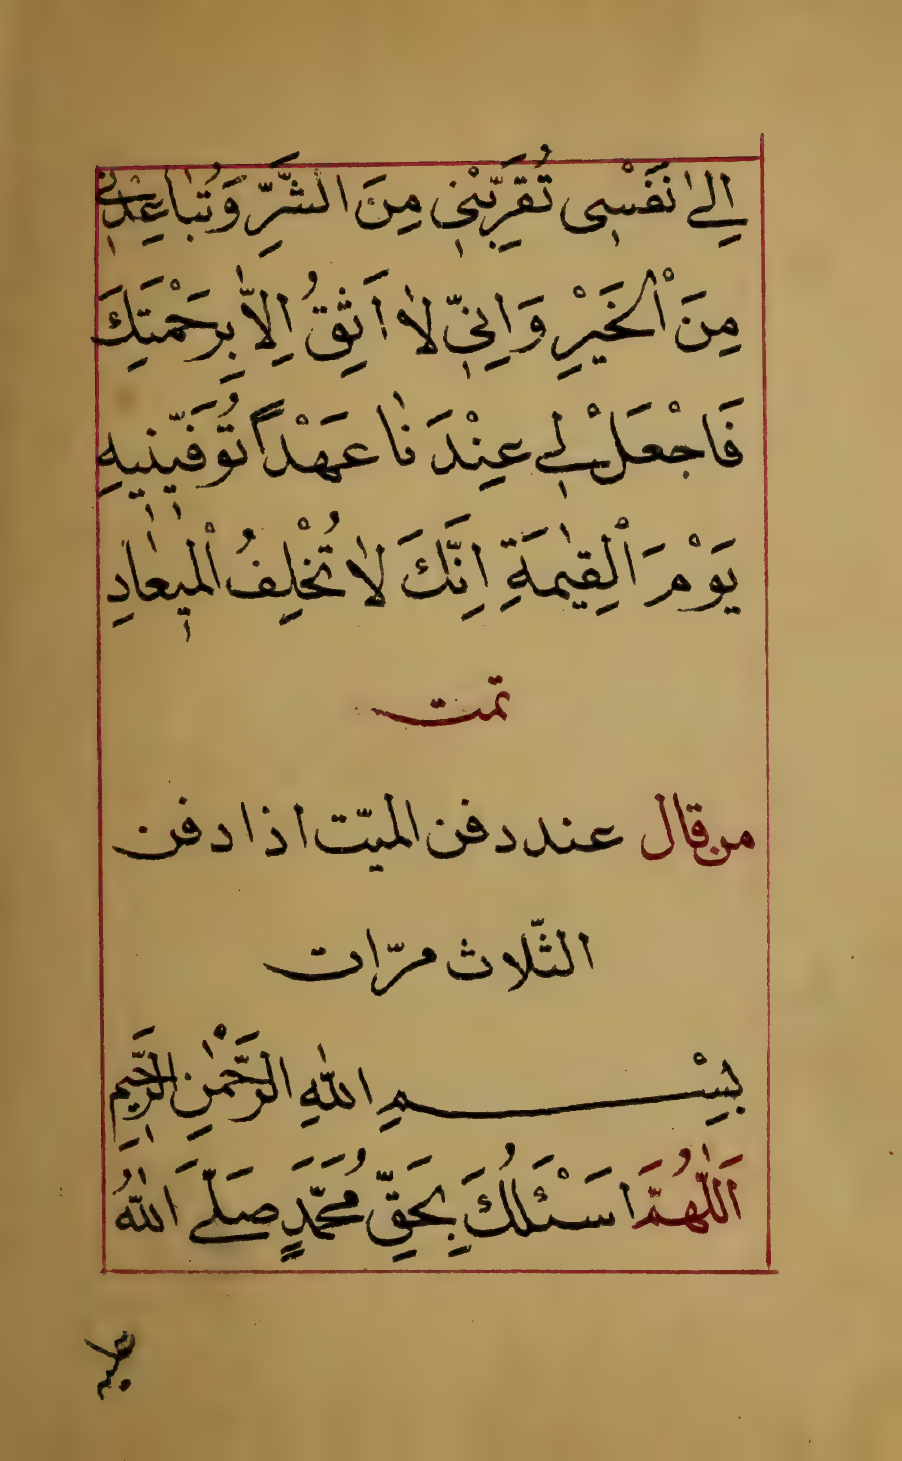 اِلىٰ نَفْسٖى تُقَرِّبْنٖى مِنَ الشَّرِّ وَتُبٰاعِدْنٖى
مِنَ الْخَيْرِ وَاِنّٖى لٰا اَثِقُ اِلاّٰ بِرَحْمَتِكَ
فَاجْعَلْ لٖى عِنْدَ نٰا عَهْدًا تُوَفّٖينٖيهِ
يَوْمَ الْقِيٰمَةِ اِنَّكَ لٰا تُخْلِفُ الْمٖيعٰادِ
تمت
من قال عند دفن الميّت اذا دفن
الثّلاث مرّات
بِسْمِ اللّٰهِ الرَّحْمٰنِ الرَّحٖيمِ
اَللّٰهُمَّ اَسْئَلُكَ بِحَقِّ مُحَمَّدٍ صَلَّى اللّٰهُ